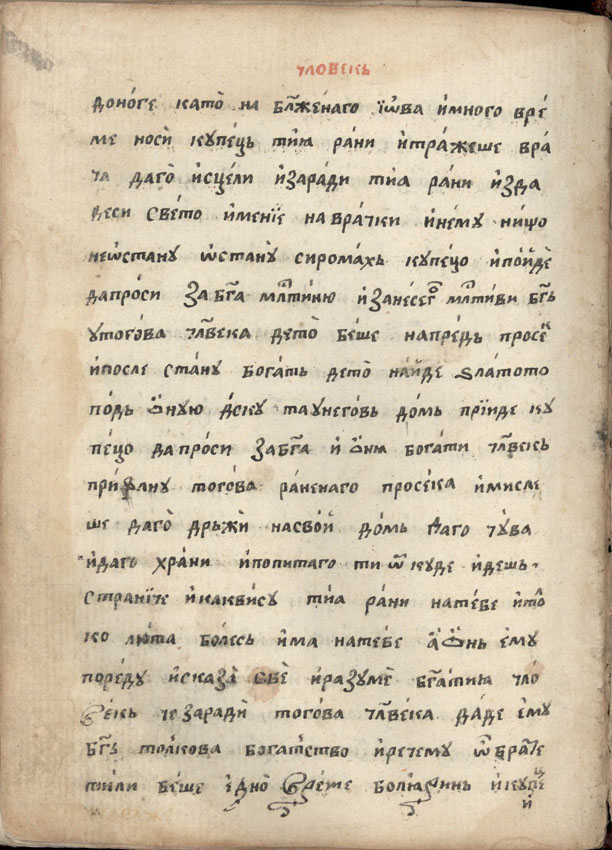 чловекь
доноге като̀ на блⷤенаго їѡ́ва и҆много вре́
ме носѝ купець ти́ꙗ рани и҆тра́жеше вра́
ча даго̀ и҆сцели и҆заради тиꙗ ра́ни и҆зда
деси све́то и҆менїе на вра́чки и҆нему ни́що
неѡстану ѡстану сирома́хь купецо и҆по́йде
да про́си за бг҃а млⷭ҇тиню и҆занесего̀ млⷭ҇тиви бг҃ь
у того́ва чл҃века дето̀ бе́ше на пре́дь просекь
и҆после ста́ну бога́ть дето̀ на́йде ѕла́тото
по́дь ѻ҆ную дску та у не́говь до́мь прїиде ку
пе́цо да про́си за бг҃а и ѻ҆ни бога́ти чл҃векь
при́фану того́ва ра́ненаго просе́ка и҆мисле
ше даго̀ дрьжѝ на свой до́мь даго чу́ва
и҆даго хра́ни и҆попитаго ти ѿ куде и҆дешь
стра́нїче и҆какви су тиꙗ ра́ни на те́бе и҆то́
ко лю́та бо́лесь и҆ма на те́бе а҆ ѻ҆нь ѐму
поре́ду и҆сказа̀ све̏ и҆разуме̏ бг҃атию чло́
векь че за́ради того́ва чл҃века да́де ѐму
бг҃ь толкова бога́тство и҆рече му ѿ бра́те
ти́ли бе́ше ѐдно̀ вре́ме болꙗ́ринь и҆купець
и҆